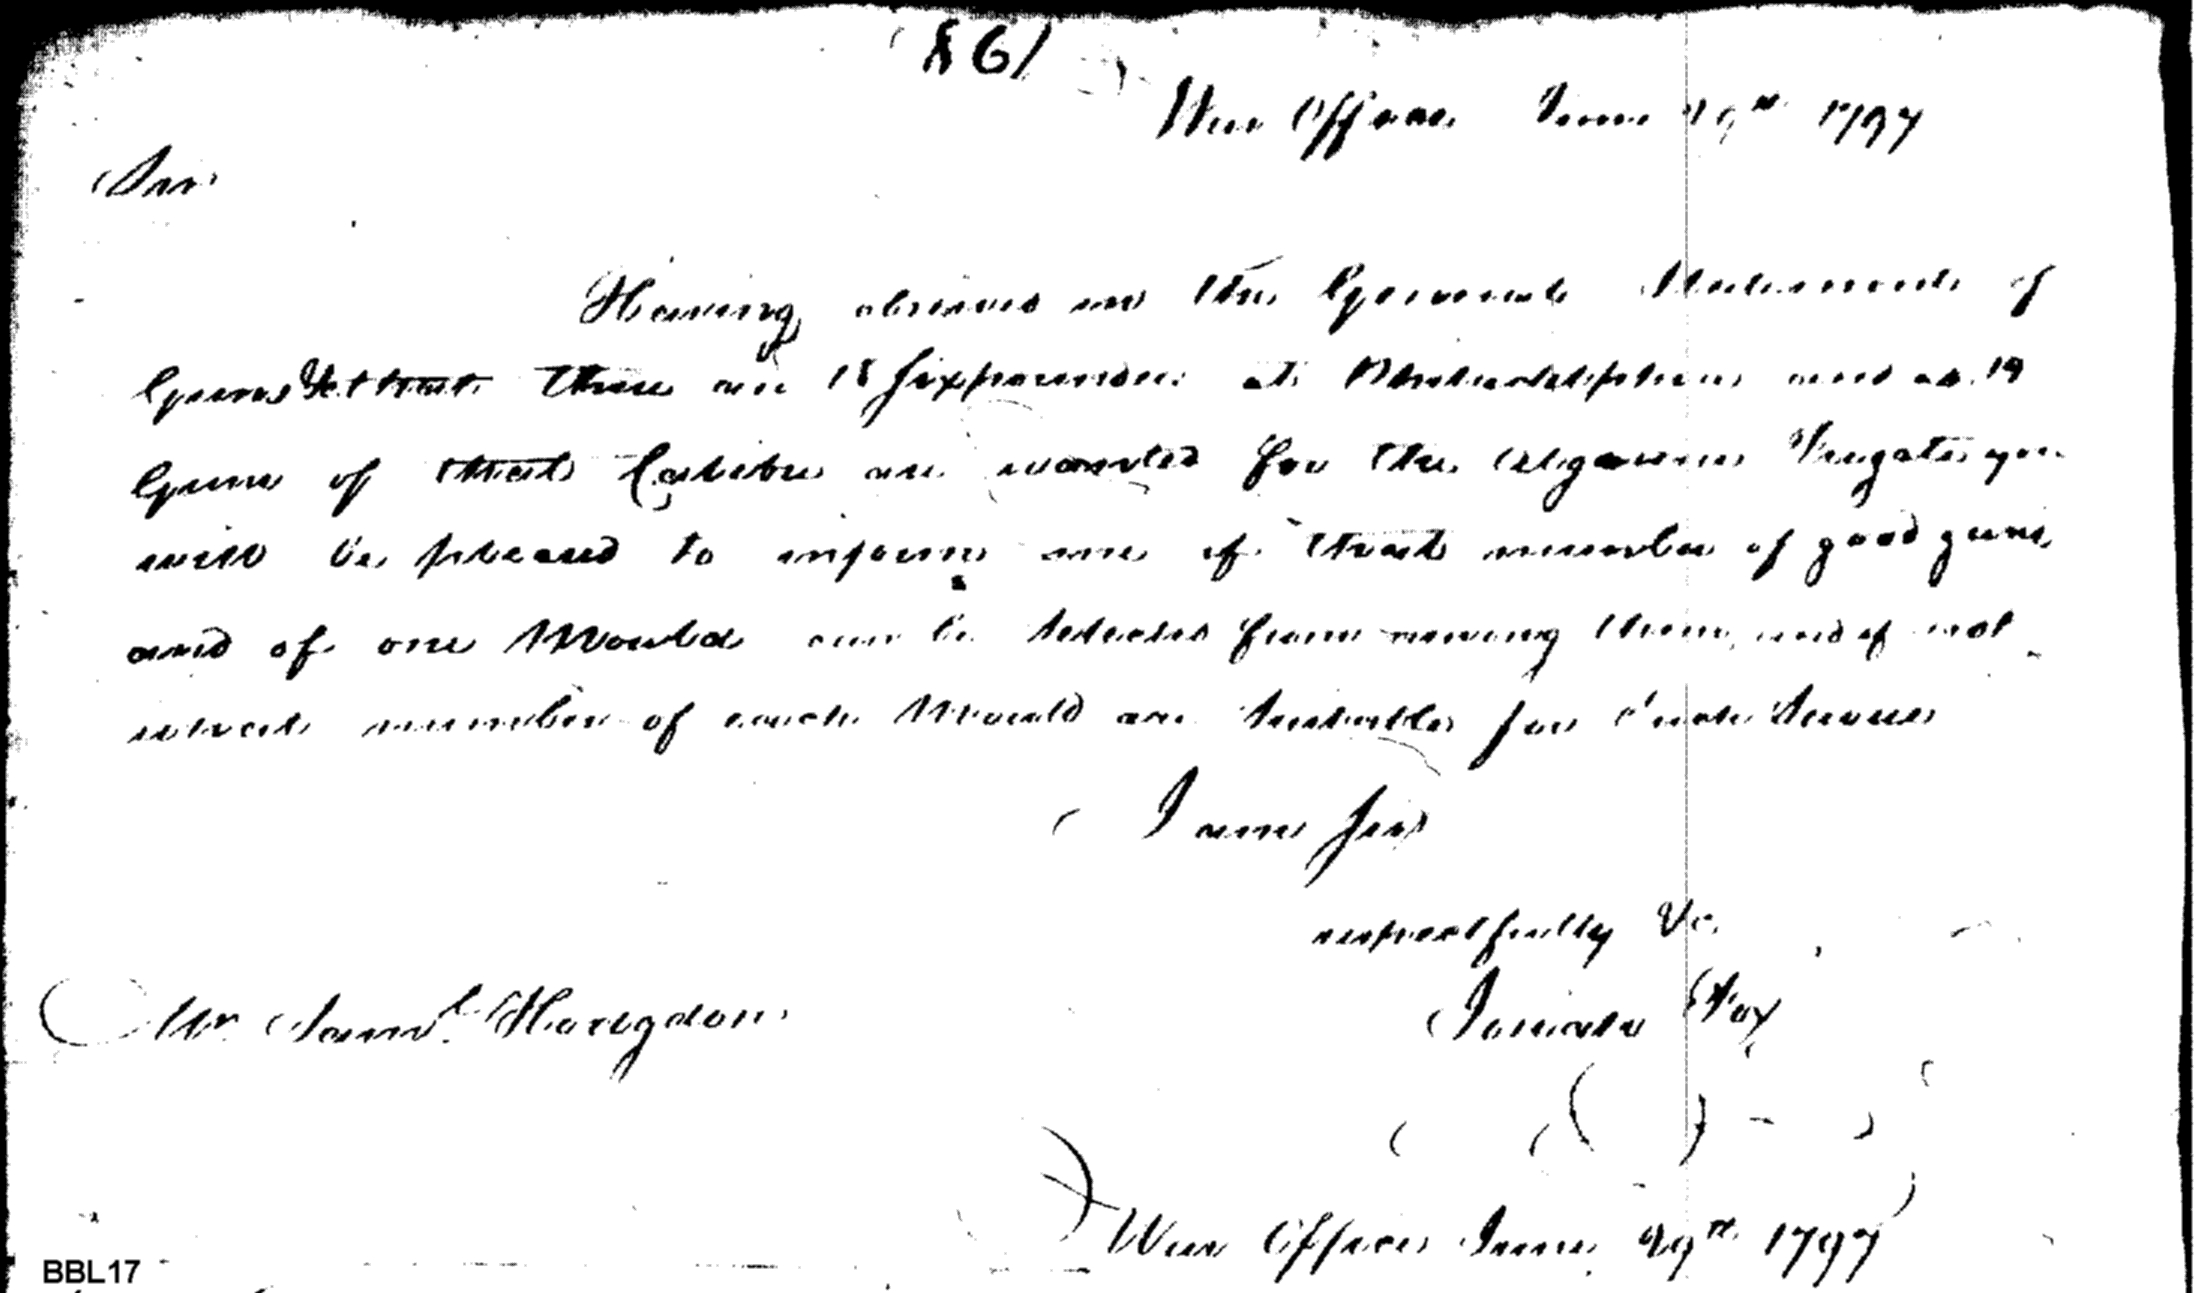 861
War Office June 29th 1797
Sir
Having observed in the General Statement of
Guns &c that there are 18 sixpounders at Philadelphia and as 19
Guns of that Calibre are wanted for the Algerine Frigate you
will be pleased to inform me if that number of good guns
and of one Mould can be selected from among them, and if not
what number of each Mould are suitable for such Service
I am Sir
respectfully &c.
Josiah Fox
Mr Saml Hodgdon
War Office June 29th 1797
BBL17